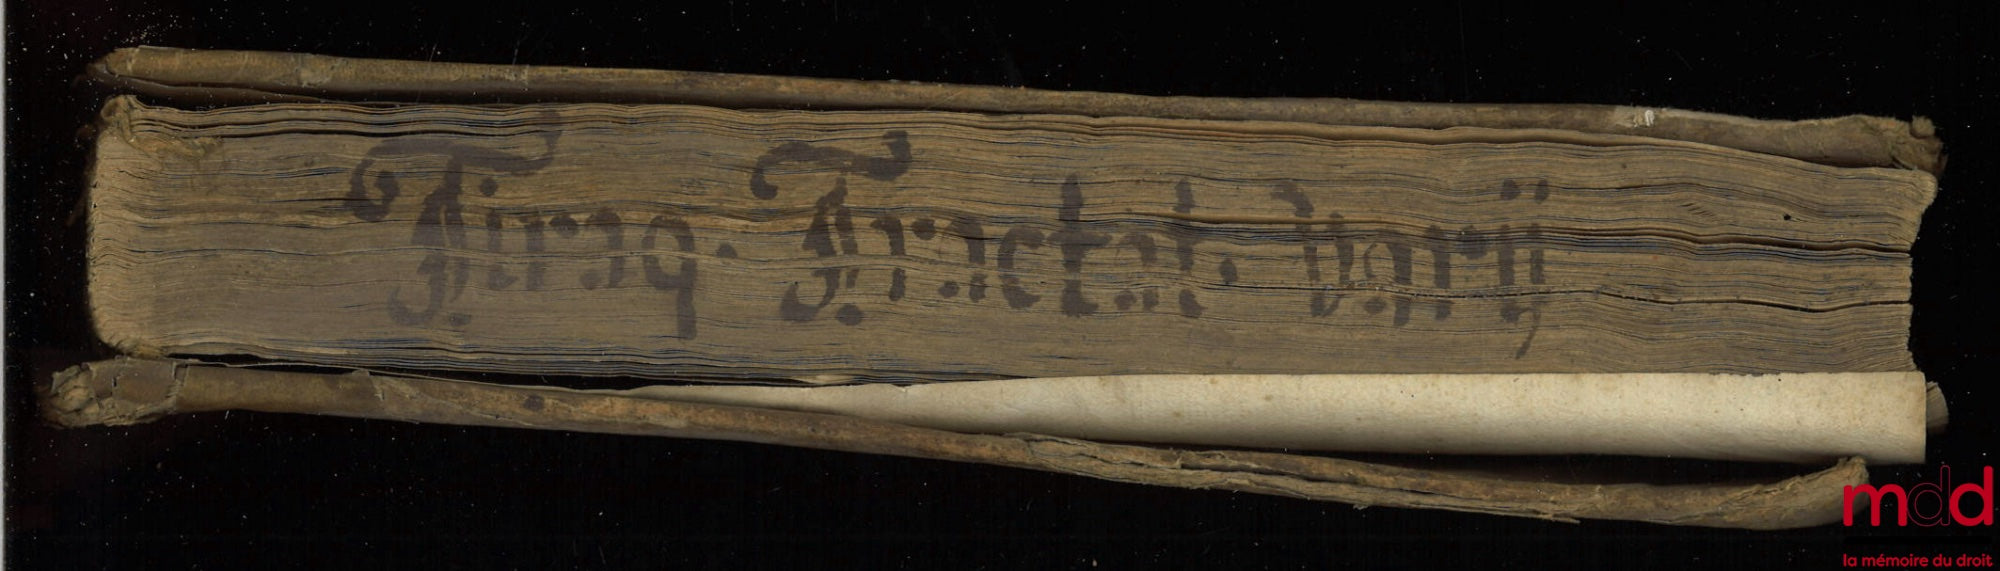 Tiraq. Tractat. Varij
mdd
la mémoire du droit